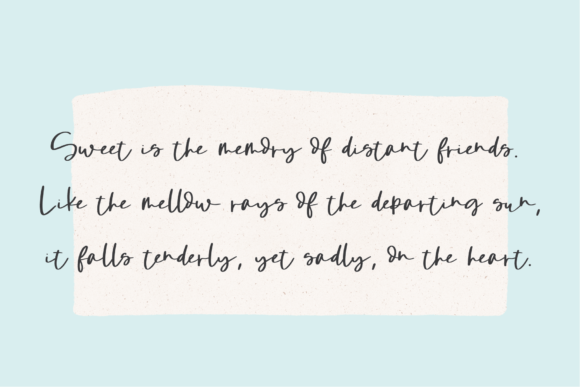 Sweet is the memory of distant friends.
Like the mellow rays of the departing sun,
it falls tenderly, yet sadly, on the heart.